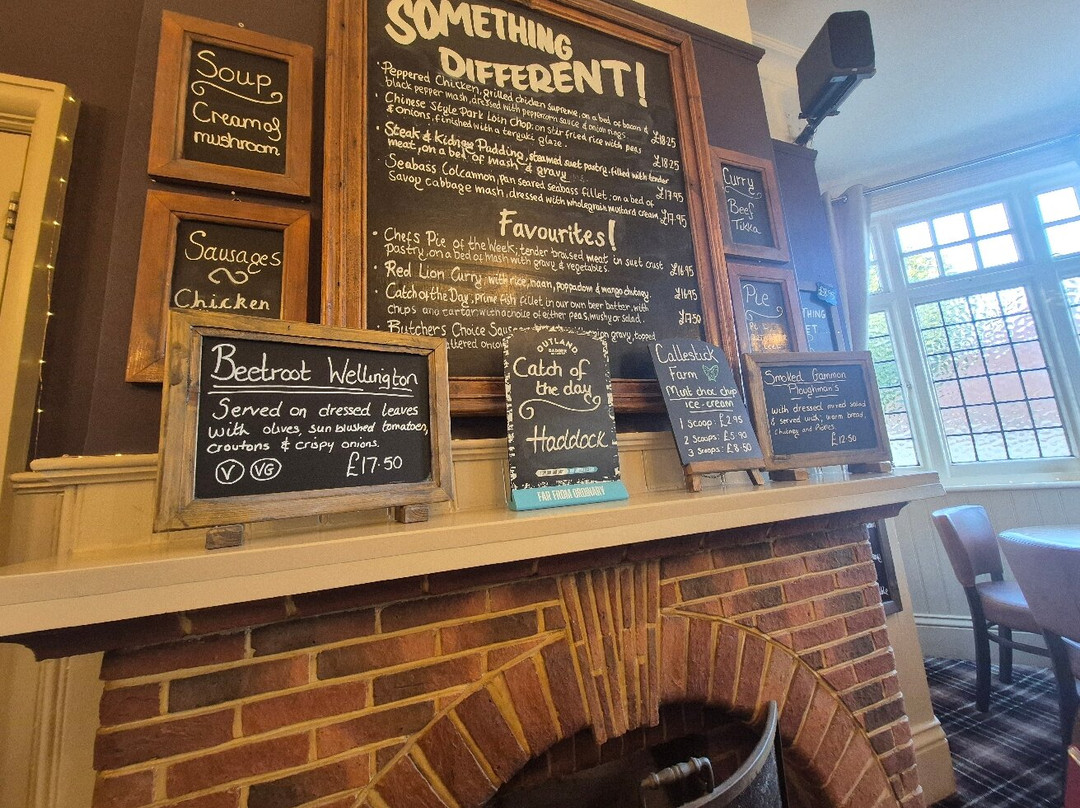 SOMETHING
DIFFERENT!
• Peppered Chicken, grilled chicken supreme, on a bed of bacon &
black pepper mash, dressed with peppercorn sauce & onion rings. £18.25
• Chinese Style Pork Loin Chop, on stir fried rice with peas
& onions, finished with a teryaki glaze. £18.25
• Steak & Kidney Pudding, steamed suet pastry, filled with tender
meat, on a bed of mash & gravy £17.95
Seabass Colcannon, pan seared seabass fillet: on a bed of
Savoy cabbage mash, dressed with wholegrain mustard cream. £17.95
Favourites!
• Chefs Pie of the Week; tender braised meat in suet crust
Pastry, on a bed of mash with gravy & vegetables. £16.95
• Red Lion Curry, with rice, naan, poppadom & mango chutney. £16.95
Catch of the Day, prime fish fillet in our own beer batter, with
chips and tartar with choice of either peas, mushy or salad. £17.50
Butchers Choice gravy, topped
Soup
Cream of
mushroom
Sausages
Chicken
Curry
Beef
Tikka
Pie
Beetroot Wellington
Served on dressed leaves
with olives, sun blushed tomatoes,
croutons & crispy onions.
V VG £17.50
OUTLAND
Catch of
the day
Haddock
FAR FROM ORDINARY
Callestick
Farm
Mint choc chip
ice-cream
1 Scoop: £2.95
2 Scoops: £5.90
3 Scoops: £8.50
Smoked Gammon
Ploughman's
with dressed mixed salad
& served with; warm bread,
Chutney and Pickles.
£12.50